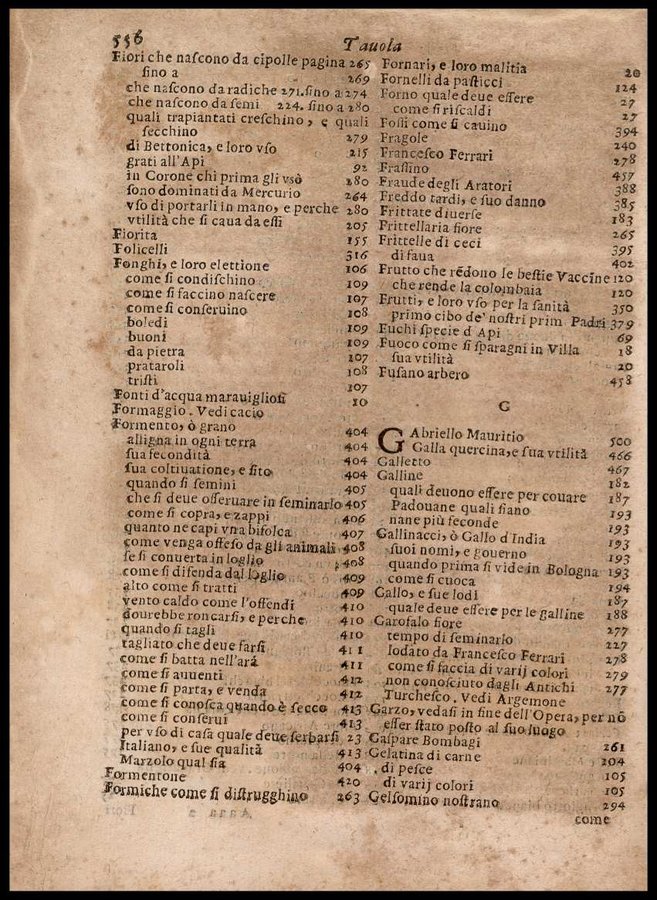 556
Tauola
Fiori che naſcono da cipolle pagina 265
ſino a 269
che naſcono da radiche 271. ſino a 274
che naſcono da ſemi 224. ſino a 280
quali trapiantati creſchino, e quali
ſecchino 279
di Bettonica, e loro vſo 215
grati all'Api 92
in Corone chi prima gli vsò 280
sono dominati da Mercurio 264
vſo di portarli in mano, e perche 280
vtilità che ſi caua da eſſi 205
Fiorita 155
Folicelli 316
Fonghi, e loro elettione 106
come ſi condiſchino 109
come ſi faccino naſcere 107
come ſi conſeruino 108
boledi 109
buoni 109
da pietra 107
prataroli 108
triſti 107
Fonti d'acqua marauiglioſi 10
Formaggio. Vedi cacio
Formento, ò grano 404
alligna in ogni terra 404
ſua fecondità 404
ſua coltiuatione, e ſito 404
quando ſi ſemini 405
che ſi deue oſſeruare in ſeminarlo 405
come ſi copra, e zappi 406
quanto ne capi vna bifolca 407
come venga offeſo da gli animali 408
ſe ſi conuerta in loglio 408
come ſi difenda dal loglio 409
alto come ſi tratti 409
vento caldo come l'offendi 410
dourebbe roncarſi, e perche 410
quando ſi tagli 410
tagliato che deue farſi 411
come ſi batta nell'ara 411
come ſi auuenti 412
come ſi parta, e venda 412
come ſi conoſca quando è ſecco 413
come ſi conſerui 413
per vſo di caſa quale deue ſerbarſi 23
Italiano, e ſue qualità 413
Marzolo qual ſia 404
Formentone 420
Formiche come ſi diſtrugghino 263
Fornari, e loro malitia 20
Fornelli da paſticci 124
Forno quale deue eſſere 27
come ſi riſcaldi 27
Foſſi come ſi cauino 394
Fragole 240
Franceſco Ferrari 278
Fraſſino 457
Fraude degli Aratori 388
Freddo tardi, e suo danno 385
Frittate diuerſe 183
Frittellaria fiore 265
Frittelle di ceci 395
di faua 402
Frutto che rēdono le beſtie Vaccine 120
che rende la colombaia 120
Frutti, e loro vſo per la sanità 350
primo cibo de' noſtri prim Padri 379
Fuchi ſpecie d Api 69
Fuoco come ſi ſparagni in Villa 18
ſua vtilità 20
Fuſano arbero 458
G
GAbriello Mauritio 500
Galla quercina, e ſua vtilità 466
Galletto 467
Galline 182
quali deuono eſſere per couare 187
Padouane quali ſiano 193
nane più feconde 193
Gallinacci, ò Gallo d'India 193
ſuoi nomi, e gouerno 193
quando prima ſi vide in Bologna 193
come ſi cuoca 194
Gallo, e ſue lodi 187
quale deue eſſere per le galline 188
Garofalo fiore 277
tempo di ſeminarlo 227
lodato da Franceſco Ferrari 278
come ſi faccia di varij colori 279
non conoſciuto dagli Antichi 277
Turcheſco. Vedi Argemone
Garzo, vedaſi in fine dell'Opera, per nō
eſſer ſtato poſto al ſuo luogo
Gaſpare Bombagi 261
Gelatina di carne 104
di peſce 105
di varij colori 105
Gelſomino noſtrano 294
come